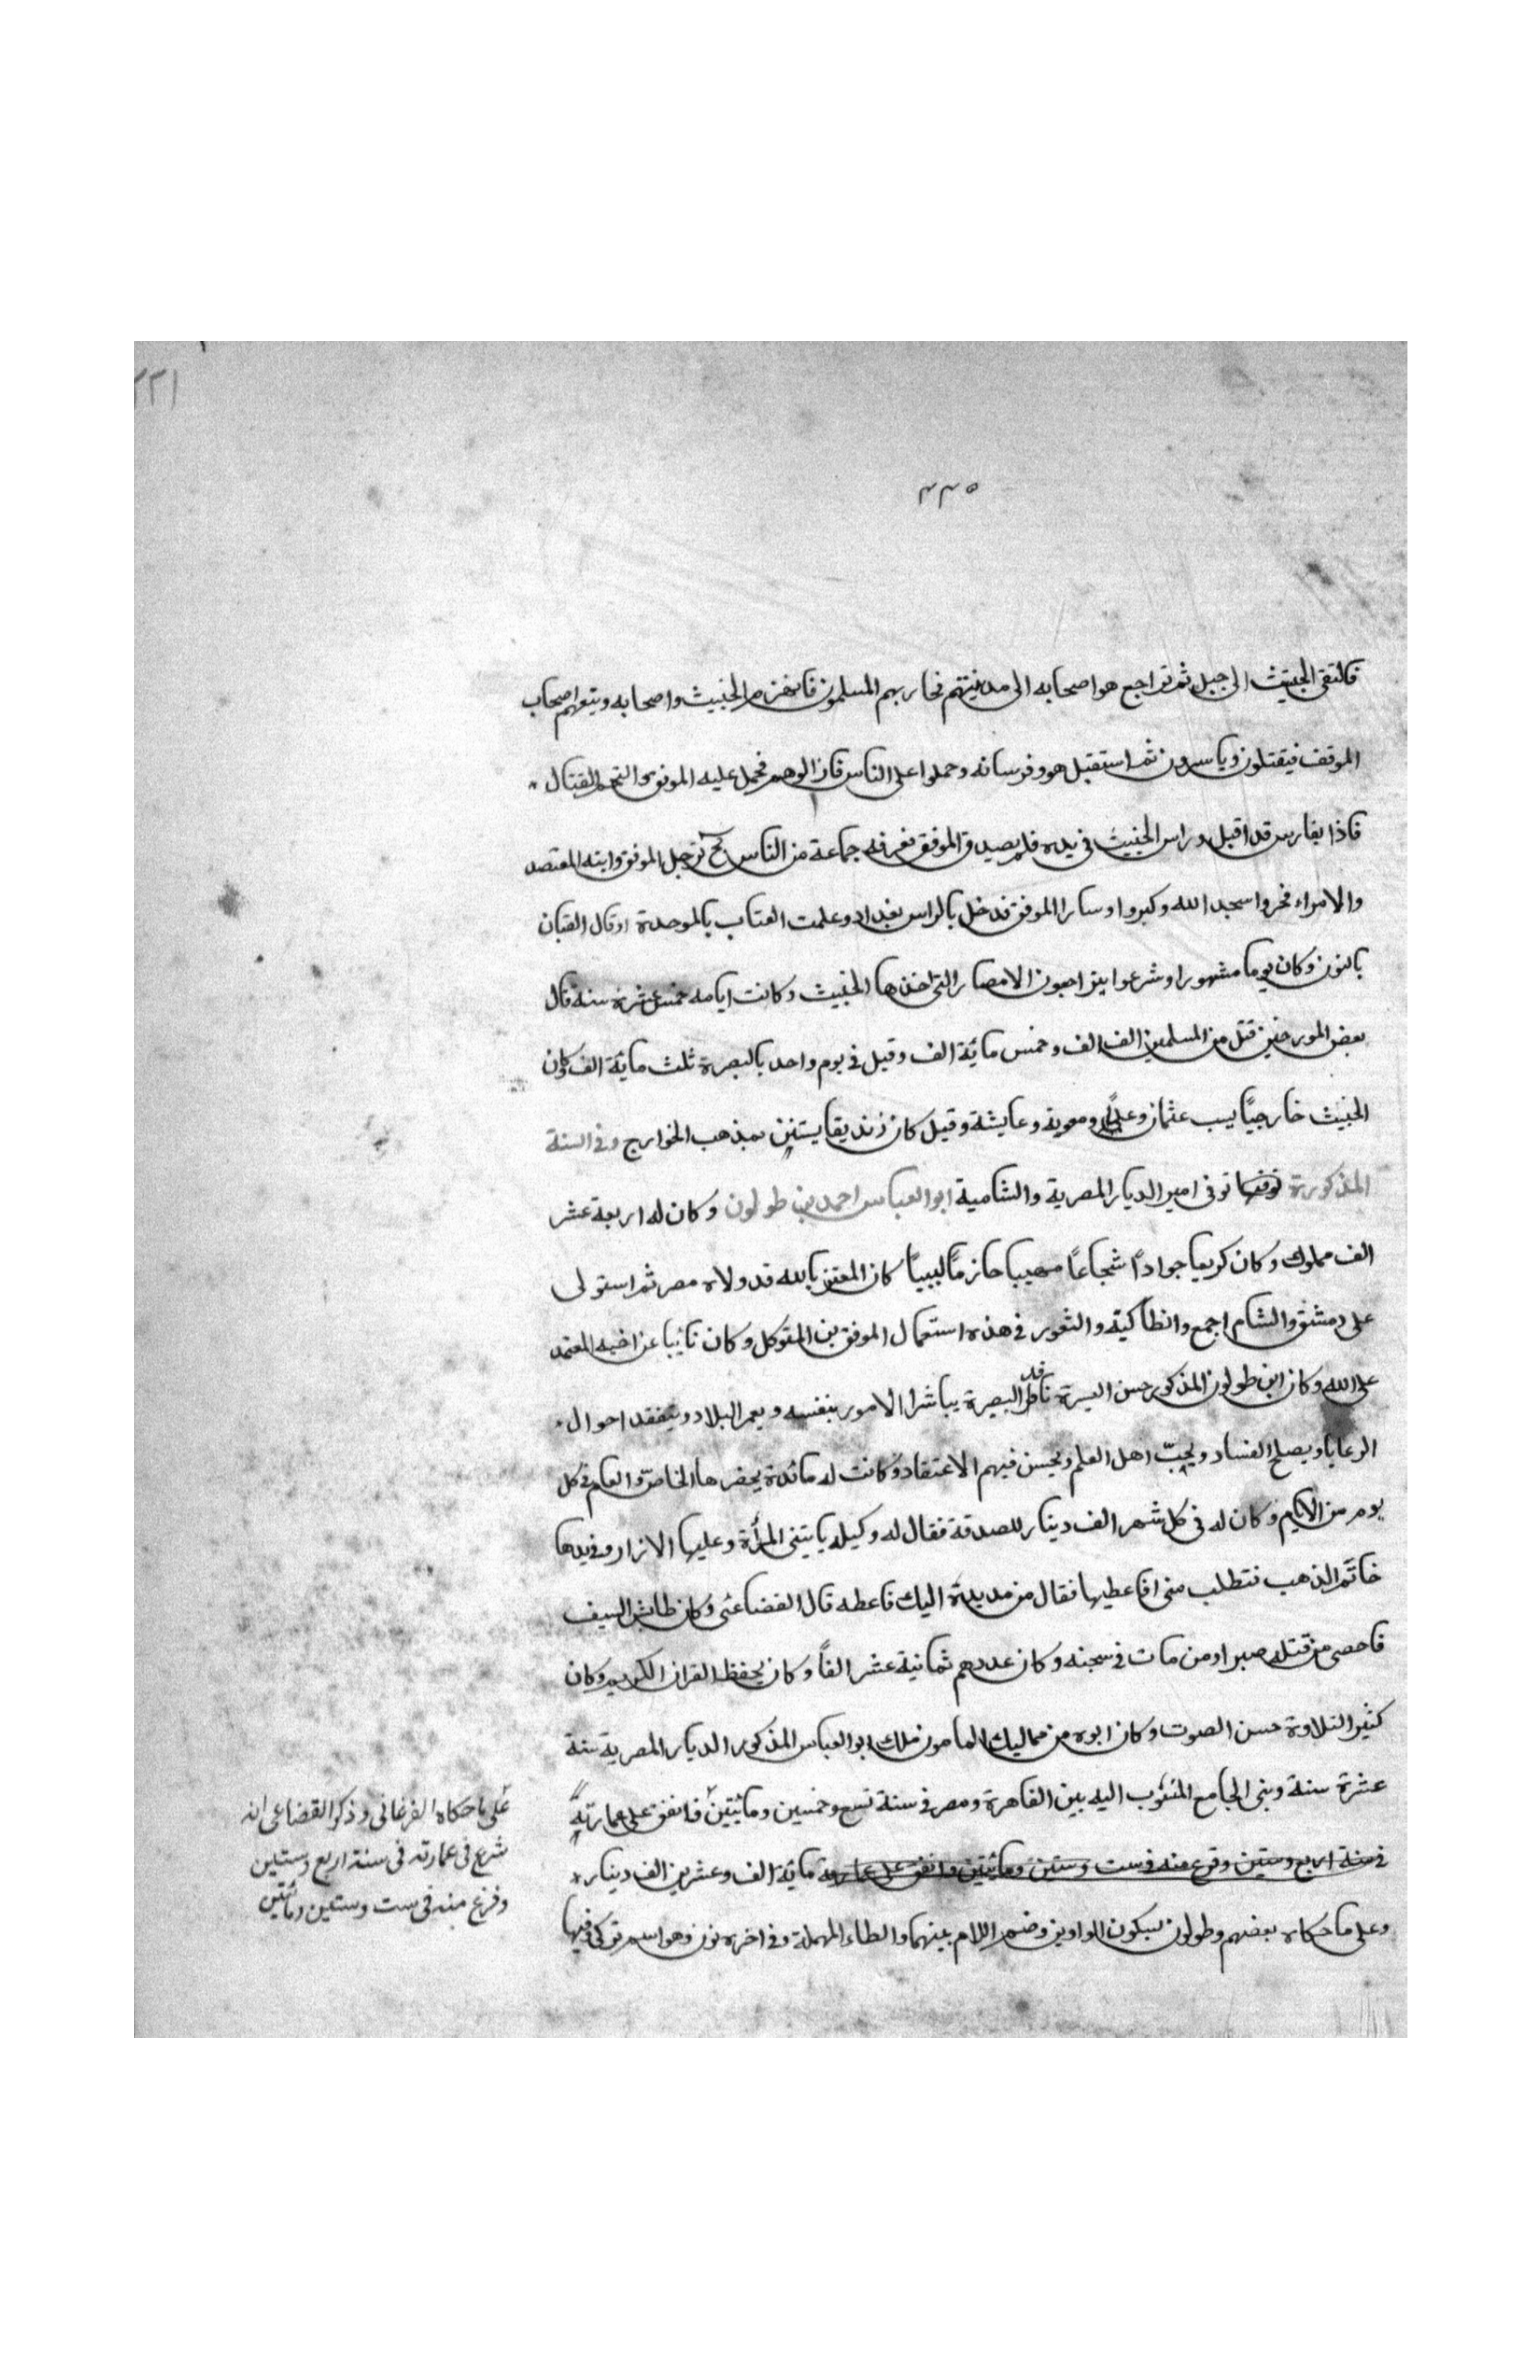 ٢٢١
٢٢٥
فالتقى الخبيث الى جبل ثم تراجع هو اصحابه الى مدينتهم فحاربهم المسلمون فانهزم الخبيث واصحابه ويتبعهم اصحاب
الموفق فيقتلون وياسرون ثم استقبل هو وفرسانه وحملوا على الناس فازالوهم فحمل عليه الموفق والتحم القتال
فاذا بفارس قد اقبل وراس الخبيث في يده فلم يصدق الموفق فعرفه جماعة من الناس ترجل الموفق وابنه المعتضد
والامراء فخروا سجدا لله وكبروا وسارا الموفق فدخل بالراس بغداد وعلمت العتاب بالموحدة اوقال القبان
بالنون وكان يوما مشهورا وشرعوا يتراجعون الامصار التي اخذها الخبيث وكانت ايامه خمس عشرة سنة قال
بعض المورخين قتل من المسلمين الف الف وخمس مائة الف وقيل في يوم واحد بالبصرة ثلث مائة الف وكان
الخبيث خارجيًا يسب عثمان وعليًا ومعوية وعايشة وقيل كان زنديقا يستتر بمذهب الخوارج وفي السنة
المذكورة توفي امير الديار المصرية والشامية ابو العباس احمد بن طولون وكان له اربعة عشر
الف مملوك وكان كريما جوادًا شجاعًا مهيبا حازمًا لبيبًا كان المعتز بالله قد ولاه مصر ثم استولى
على دمشق والشام اجمع وانطاكية والثغور في هذه استعمال الموفق بن المتوكل وكان نائبا عن اخيه المعتمد
على الله وكان ابن طولون المذكور حسن السيرة البصيرة يباشر الامور بنفسه ويعمر البلاد ويتفقد احوال
الرعايا ويصلح الفساد ويحبّ اهل العلم ويحسن فيهم الاعتقاد وكانت له مائدة يحضرها الخاصّ والعام في كل
يوم من الايام وكان له في كل شهر الف دينار للصدقة فقال له وكيله ياتيني المرأة وعليها الازار وفي يدها
خاتم الذهب فتطلب مني افاعطيها فقال من مد يده اليك فاعطه قال القضاعي وكان طائش السيف
فاحصي من قتله صبرا ومن مات في سجنه وكان عددهم ثمانية عشر الفًا وكان يحفظ القران الكريم وكان
كثير التلاوة حسن الصوت وكان ابوه من مماليك المامون ملك ابو العباس المذكور الديار المصرية ستة
عشرة سنة وبنى الجامع المنسوب اليه بين القاهرة ومصر في سنة تسع وخمسين ومائتين فانفق على عمارته
في سنة اربع وستين وفرغ منه في ست وستين ومائتين وانفق على عمارته مائة الف وعشرين الف دينار
وعلى ما حكاه بعضهم وطولون بسكون الواوين وضم اللام بينهما والطاء المهملة وفي اخره نون وهو اسم تركي فيها
على ما حكاه الفرغاني وذكر القضاعي انه
شرع في عمارته في سنة اربع وستين
وفرغ منه في ست وستين ومائتين